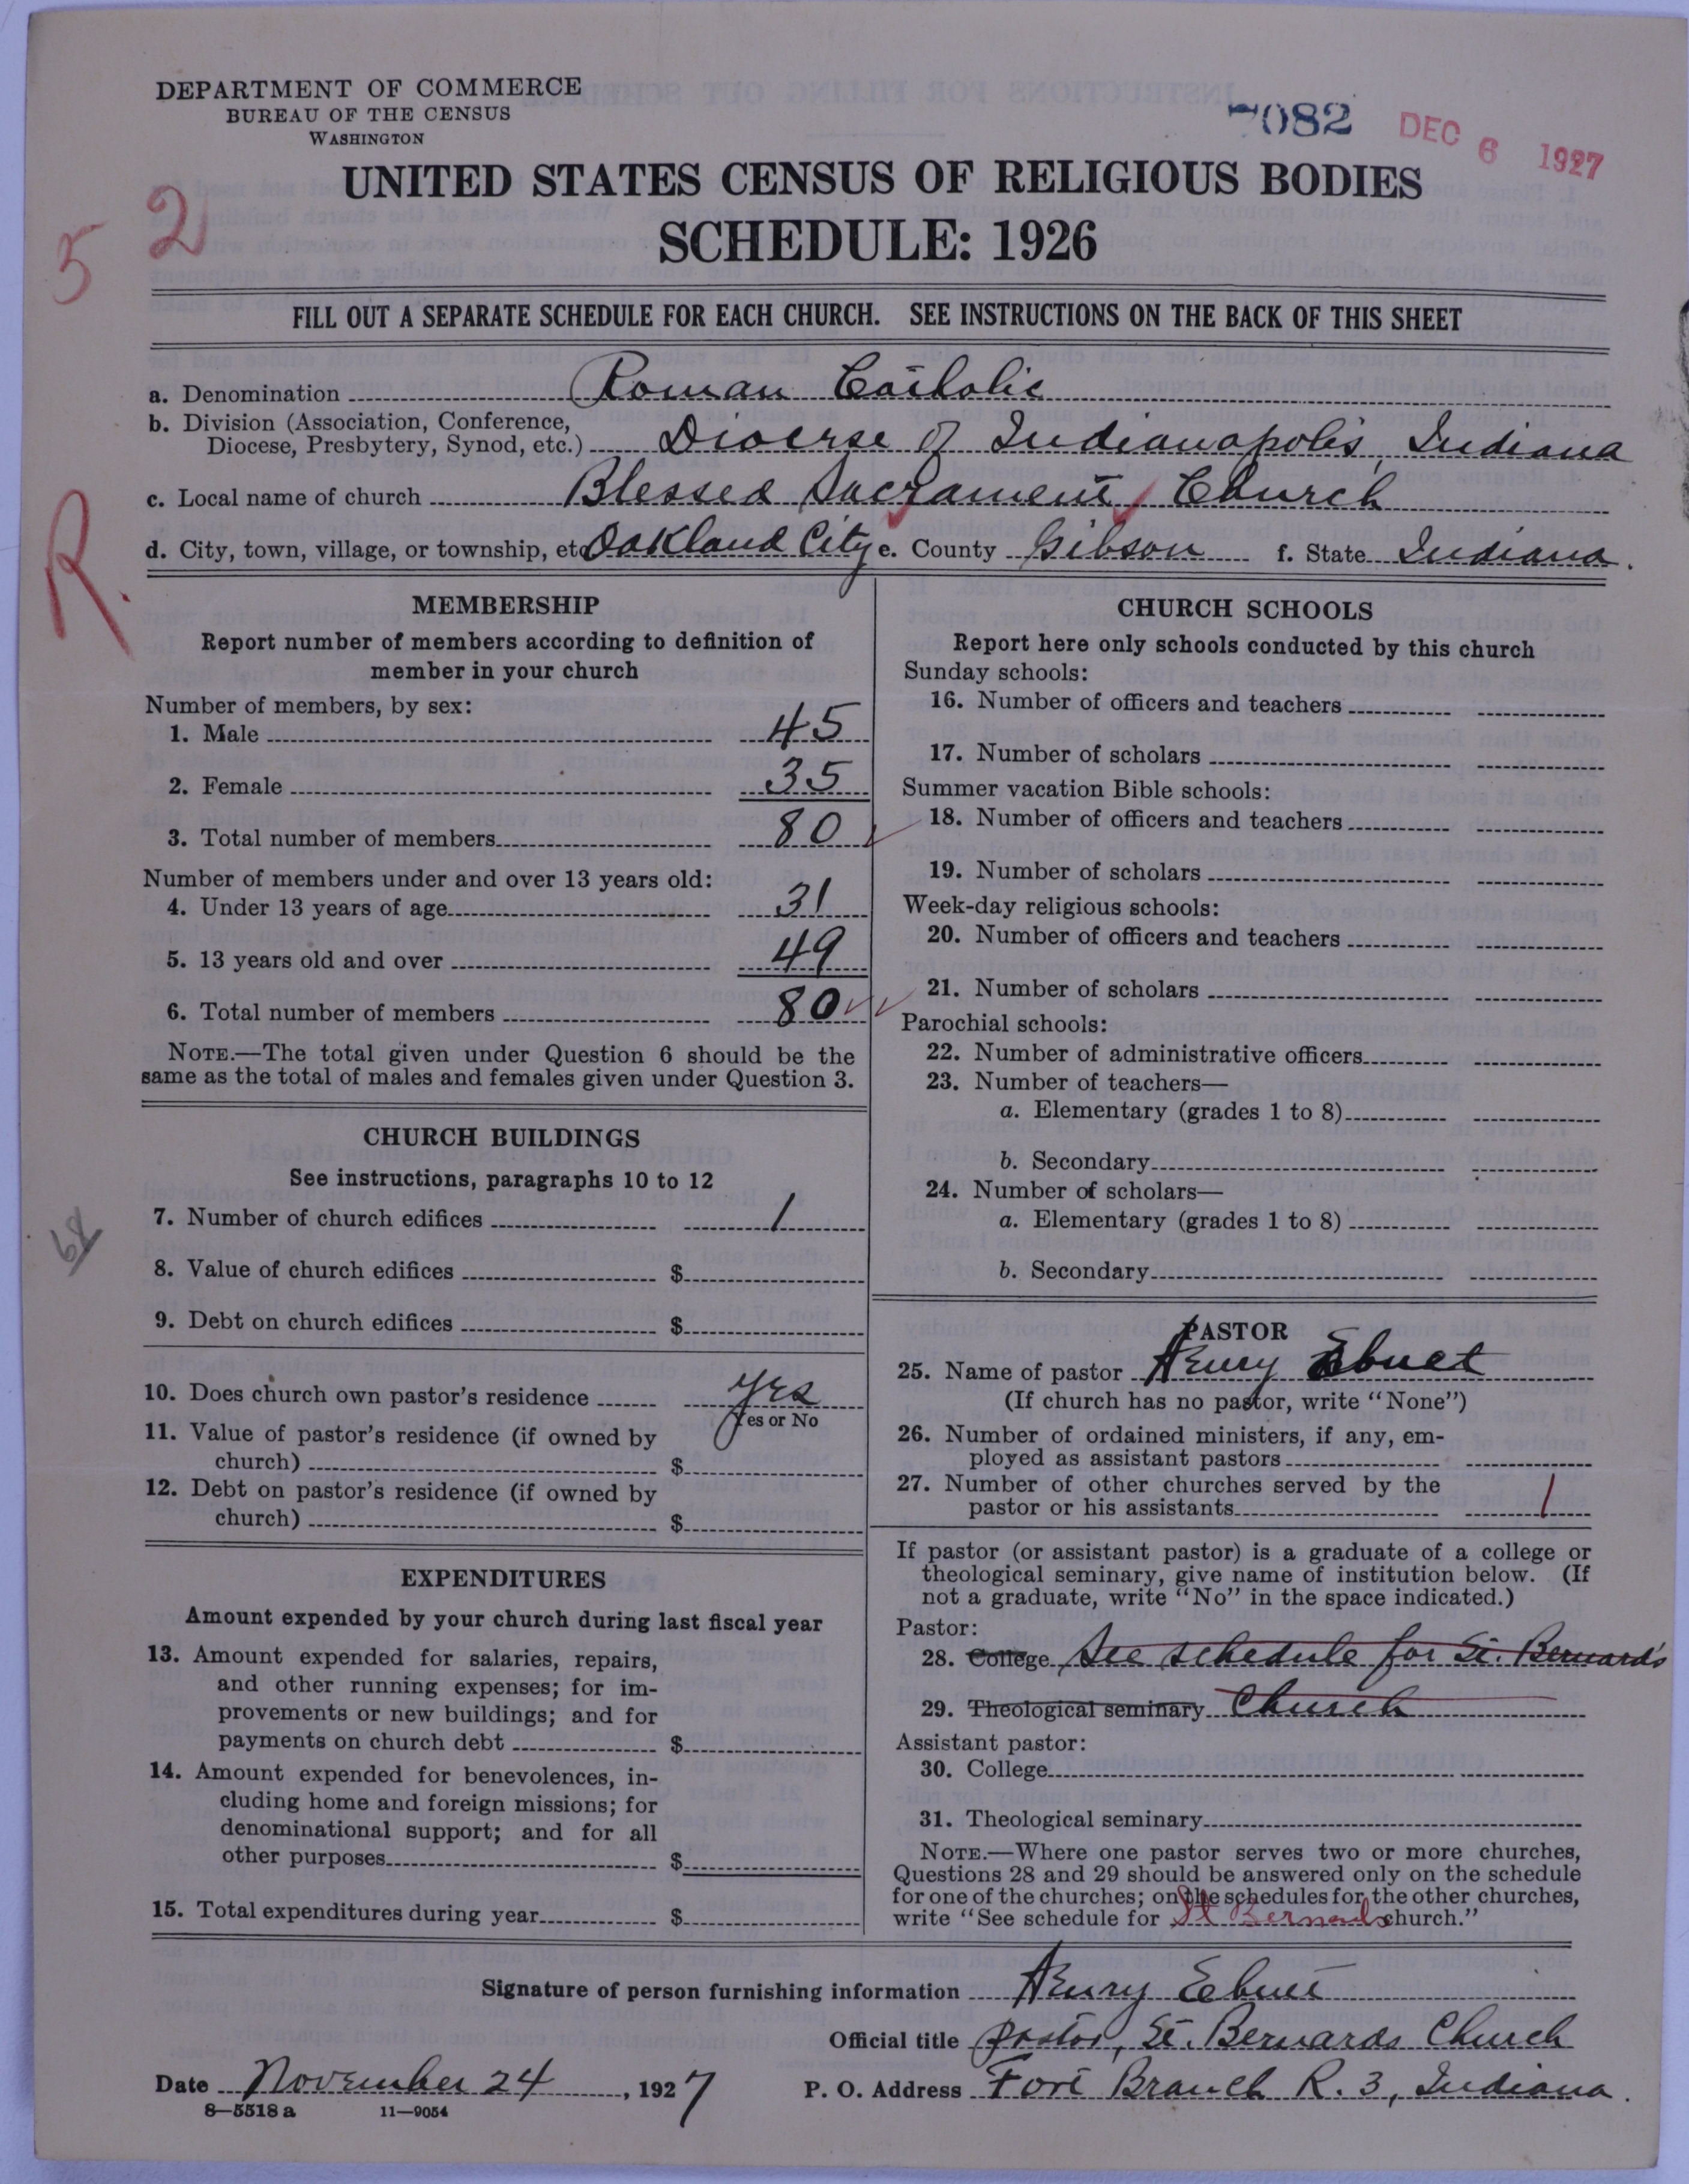 DEPARTMENT OF COMMERCE
BUREAU OF THE CENSUS
WASHINGTON
7082 DEC 6 1927
UNITED STATES CENSUS OF RELIGIOUS BODIES
SCHEDULE: 1926
52
FILL OUT A SEPARATE SCHEDULE FOR EACH CHURCH. SEE INSTRUCTIONS ON THE BACK OF THIS SHEET
a. Denomination Roman Catholic
b. Division (Association, Conference,
Diocese, Presbytery, Synod, etc.) Diocese of Indianapolis, Indiana
c. Local name of church Blessed Sacrament Church
R.
d. City, town, village, or township, etc Oakland City e. County Gibson f. State Indiana.
MEMBERSHIP
Report number of members according to definition of
member in your church
Number of members, by sex:
1. Male 45
2. Female 35
3. Total number of members 80
Number of members under and over 13 years old:
4. Under 13 years of age 31
5. 13 years old and over 49
6. Total number of members 80
NOTE.—The total given under Question 6 should be the
same as the total of males and females given under Question 3.
CHURCH BUILDINGS
See instructions, paragraphs 10 to 12
7. Number of church edifices 1
8. Value of church edifices $
9. Debt on church edifices $
10. Does church own pastor's residence yes
Yes or No
11. Value of pastor's residence (if owned by
church) $
12. Debt on pastor's residence (if owned by
church) $
EXPENDITURES
Amount expended by your church during last fiscal year
13. Amount expended for salaries, repairs,
and other running expenses; for im-
provements or new buildings; and for
payments on church debt $
14. Amount expended for benevolences, in-
cluding home and foreign missions; for
denominational support; and for all
other purposes $
15. Total expenditures during year $
CHURCH SCHOOLS
Report here only schools conducted by this church
Sunday schools:
16. Number of officers and teachers
17. Number of scholars
Summer vacation Bible schools:
18. Number of officers and teachers
19. Number of scholars
Week-day religious schools:
20. Number of officers and teachers
21. Number of scholars
Parochial schools:
22. Number of administrative officers
23. Number of teachers—
a. Elementary (grades 1 to 8)
b. Secondary
24. Number of scholars—
a. Elementary (grades 1 to 8)
b. Secondary
PASTOR
25. Name of pastor Henry Ebnet
(If church has no pastor, write "None")
26. Number of ordained ministers, if any, em-
ployed as assistant pastors
27. Number of other churches served by the
pastor or his assistants 1
If pastor (or assistant pastor) is a graduate of a college or
theological seminary, give name of institution below. (If
not a graduate, write "No" in the space indicated.)
Pastor:
28. College See schedule for St. Bernards'
29. Theological seminary Church
Assistant pastor:
30. College
31. Theological seminary
NOTE.—Where one pastor serves two or more churches,
Questions 28 and 29 should be answered only on the schedule
for one of the churches; on the schedules for the other churches,
write "See schedule for St Bernards church."
Signature of person furnishing information Henry Ebnet
Official title pastor, St. Bernards Church
Date November 24, 1927 P. O. Address Fort Branch R. 3, Indiana.
8—5518 a 11—9054